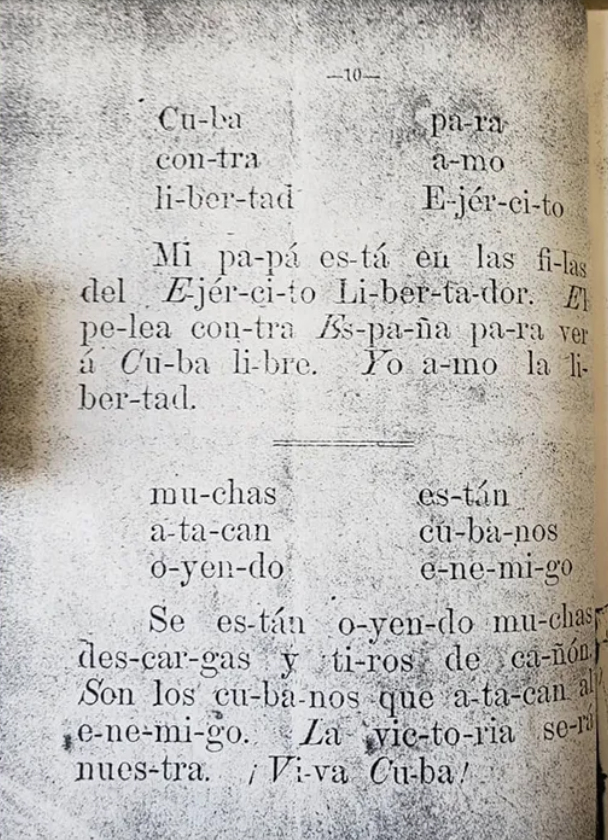 —10—
Cu-ba pa-ra
con-tra a-mo
li-ber-tad E-jér-ci-to
Mi pa-pá es-tá en las fi-las
del E-jér-ci-to Li-ber-ta-dor. El
pe-lea con-tra Es-pa-ña pa-ra ver
á Cu-ba li-bre. Yo a-mo la li-
ber-tad.
mu-chas es-tán
a-ta-can cu-ba-nos
o-yen-do e-ne-mi-go
Se es-tán o-yen-do mu-chas
des-car-gas y ti-ros de ca-ñón.
Son los cu-ba-nos que a-ta-can al
e-ne-mi-go. La vic-to-ria se-rá
nues-tra. ¡Vi-va Cu-ba!